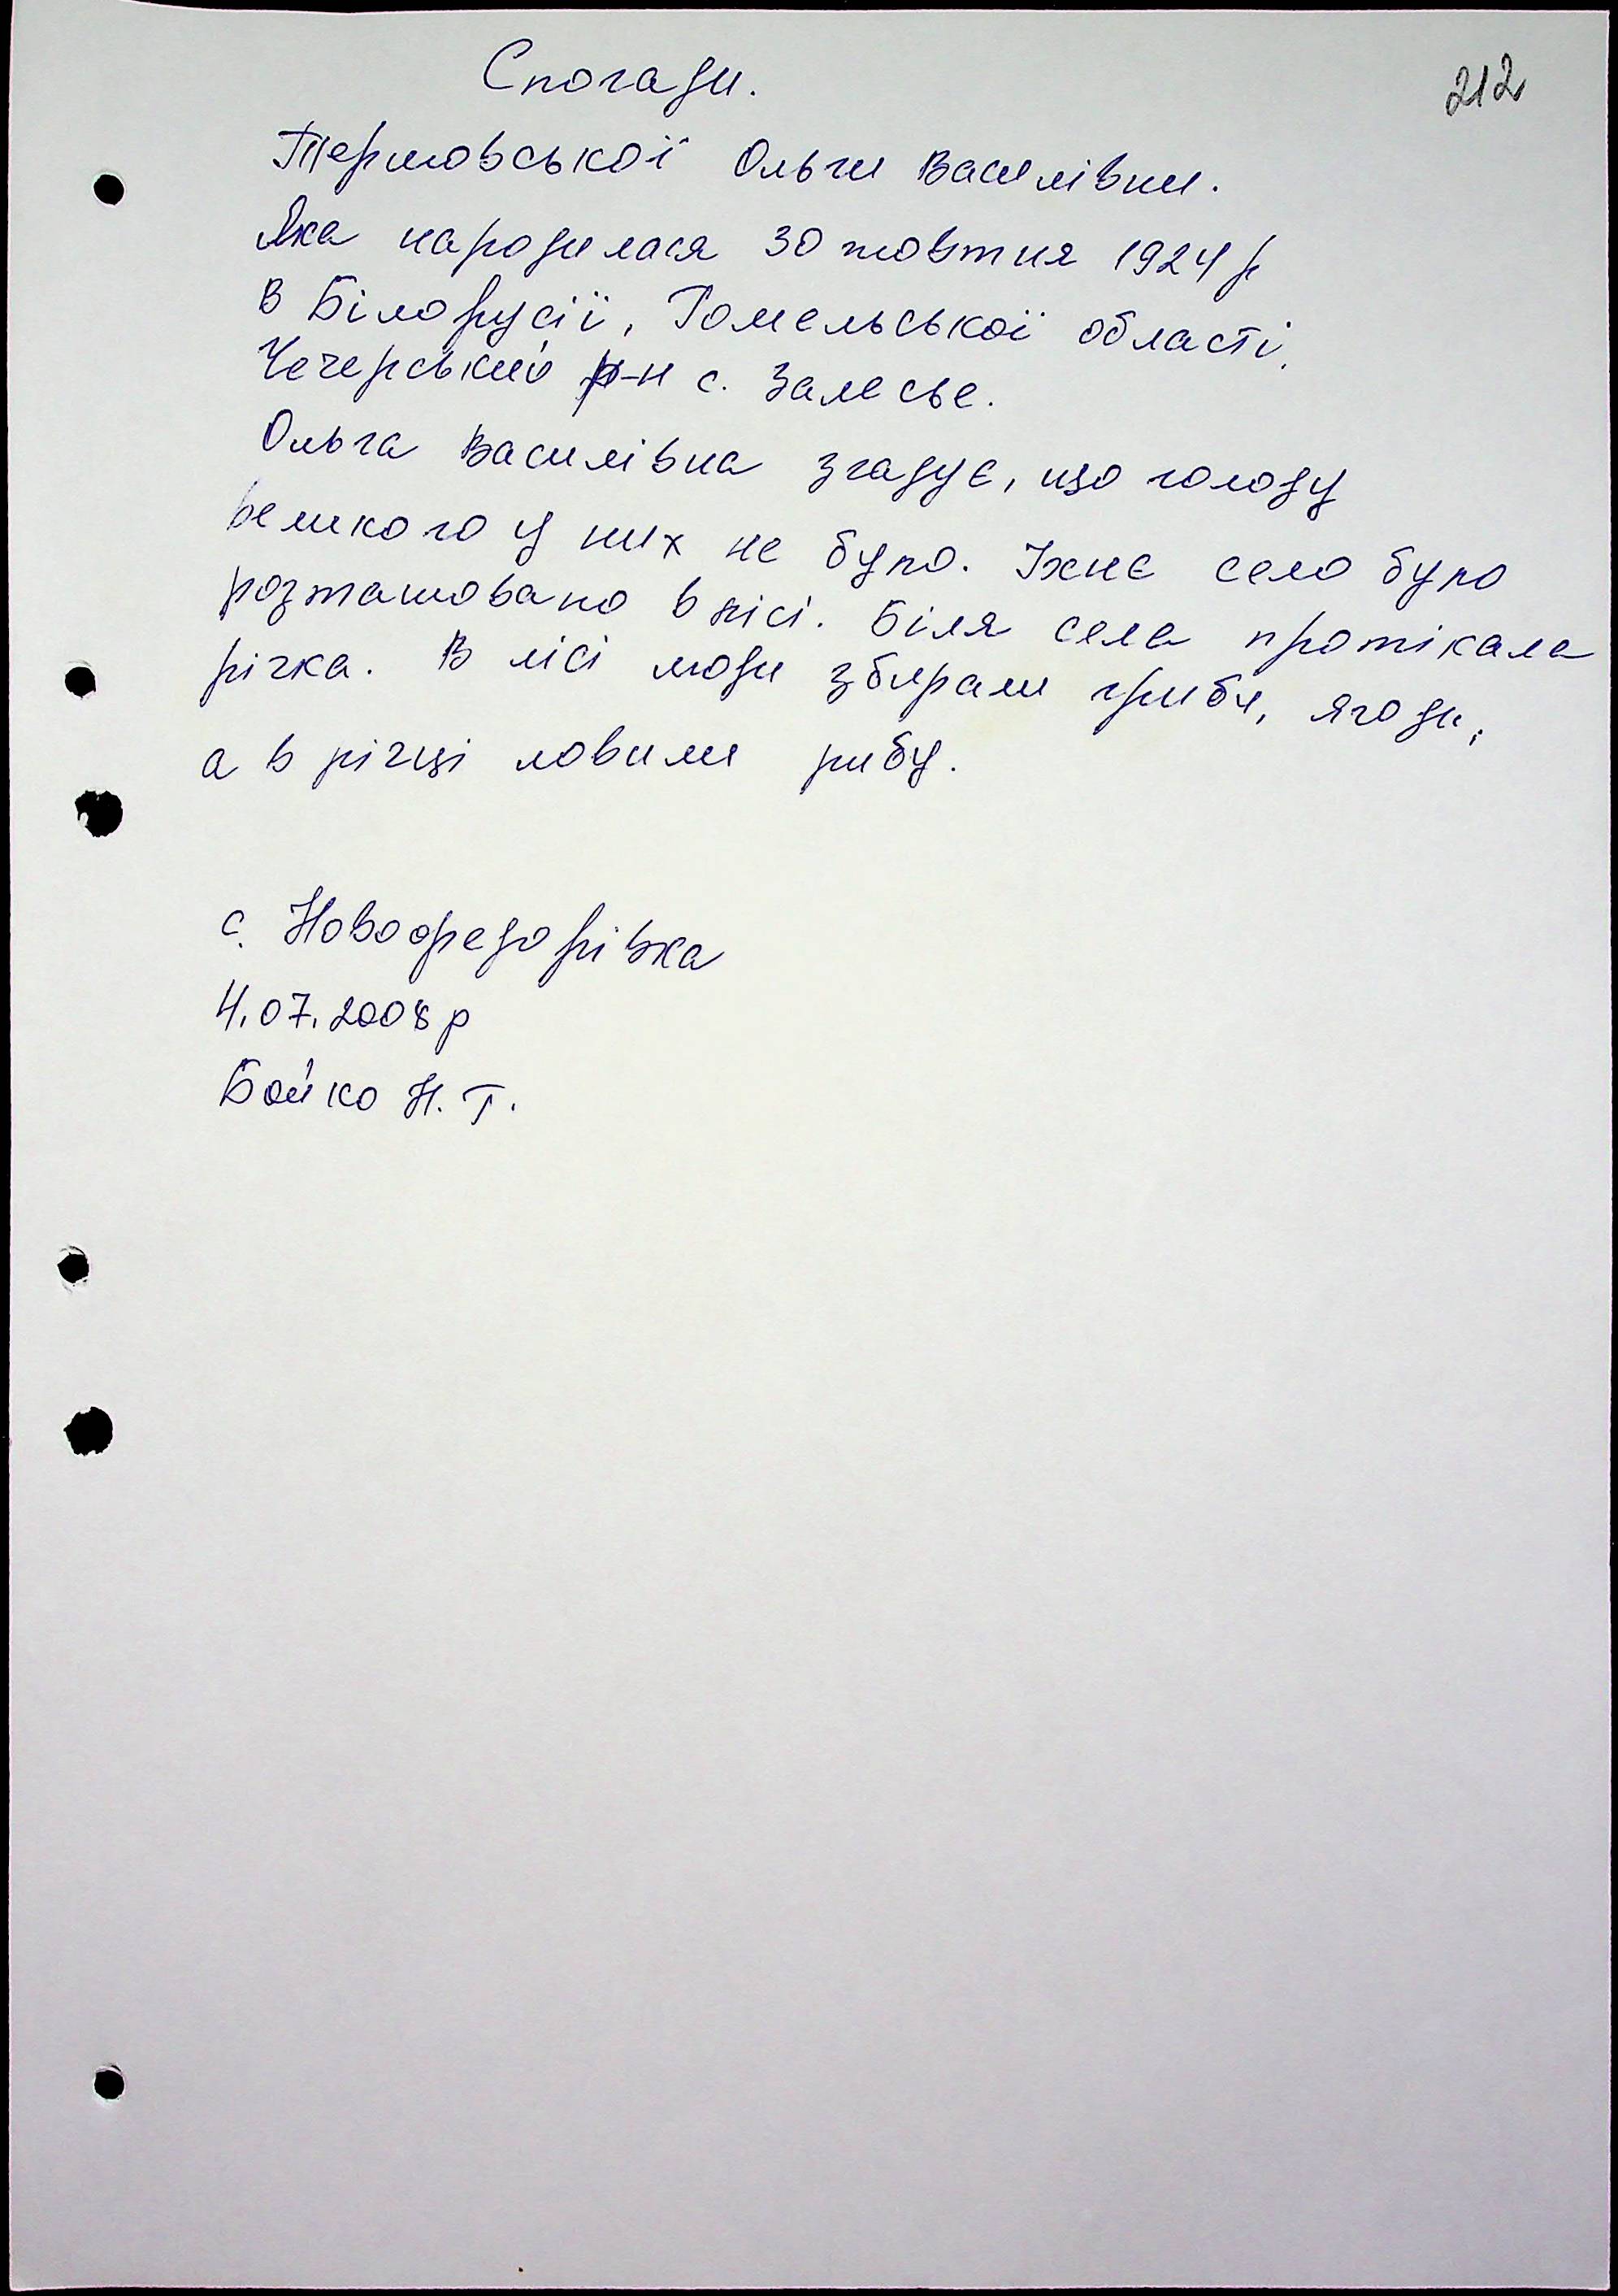 212
Спогади.
Термовської Ольги Василівни.
Яка народилася 30 жовтня 1924 р
в Білорусії, Гомельської області,
Чечерський р-н с. Залесье.
Ольга Василівна згадує, що голоду
великого у них не було. Їхнє село було
розташовано в лісі. Біля села протікала
річка. В лісі люди збирали гриби, ягоди,
а в річці ловили рибу.
с. Новофедорівка
4.07.2008 р
Бойко Н. Т.